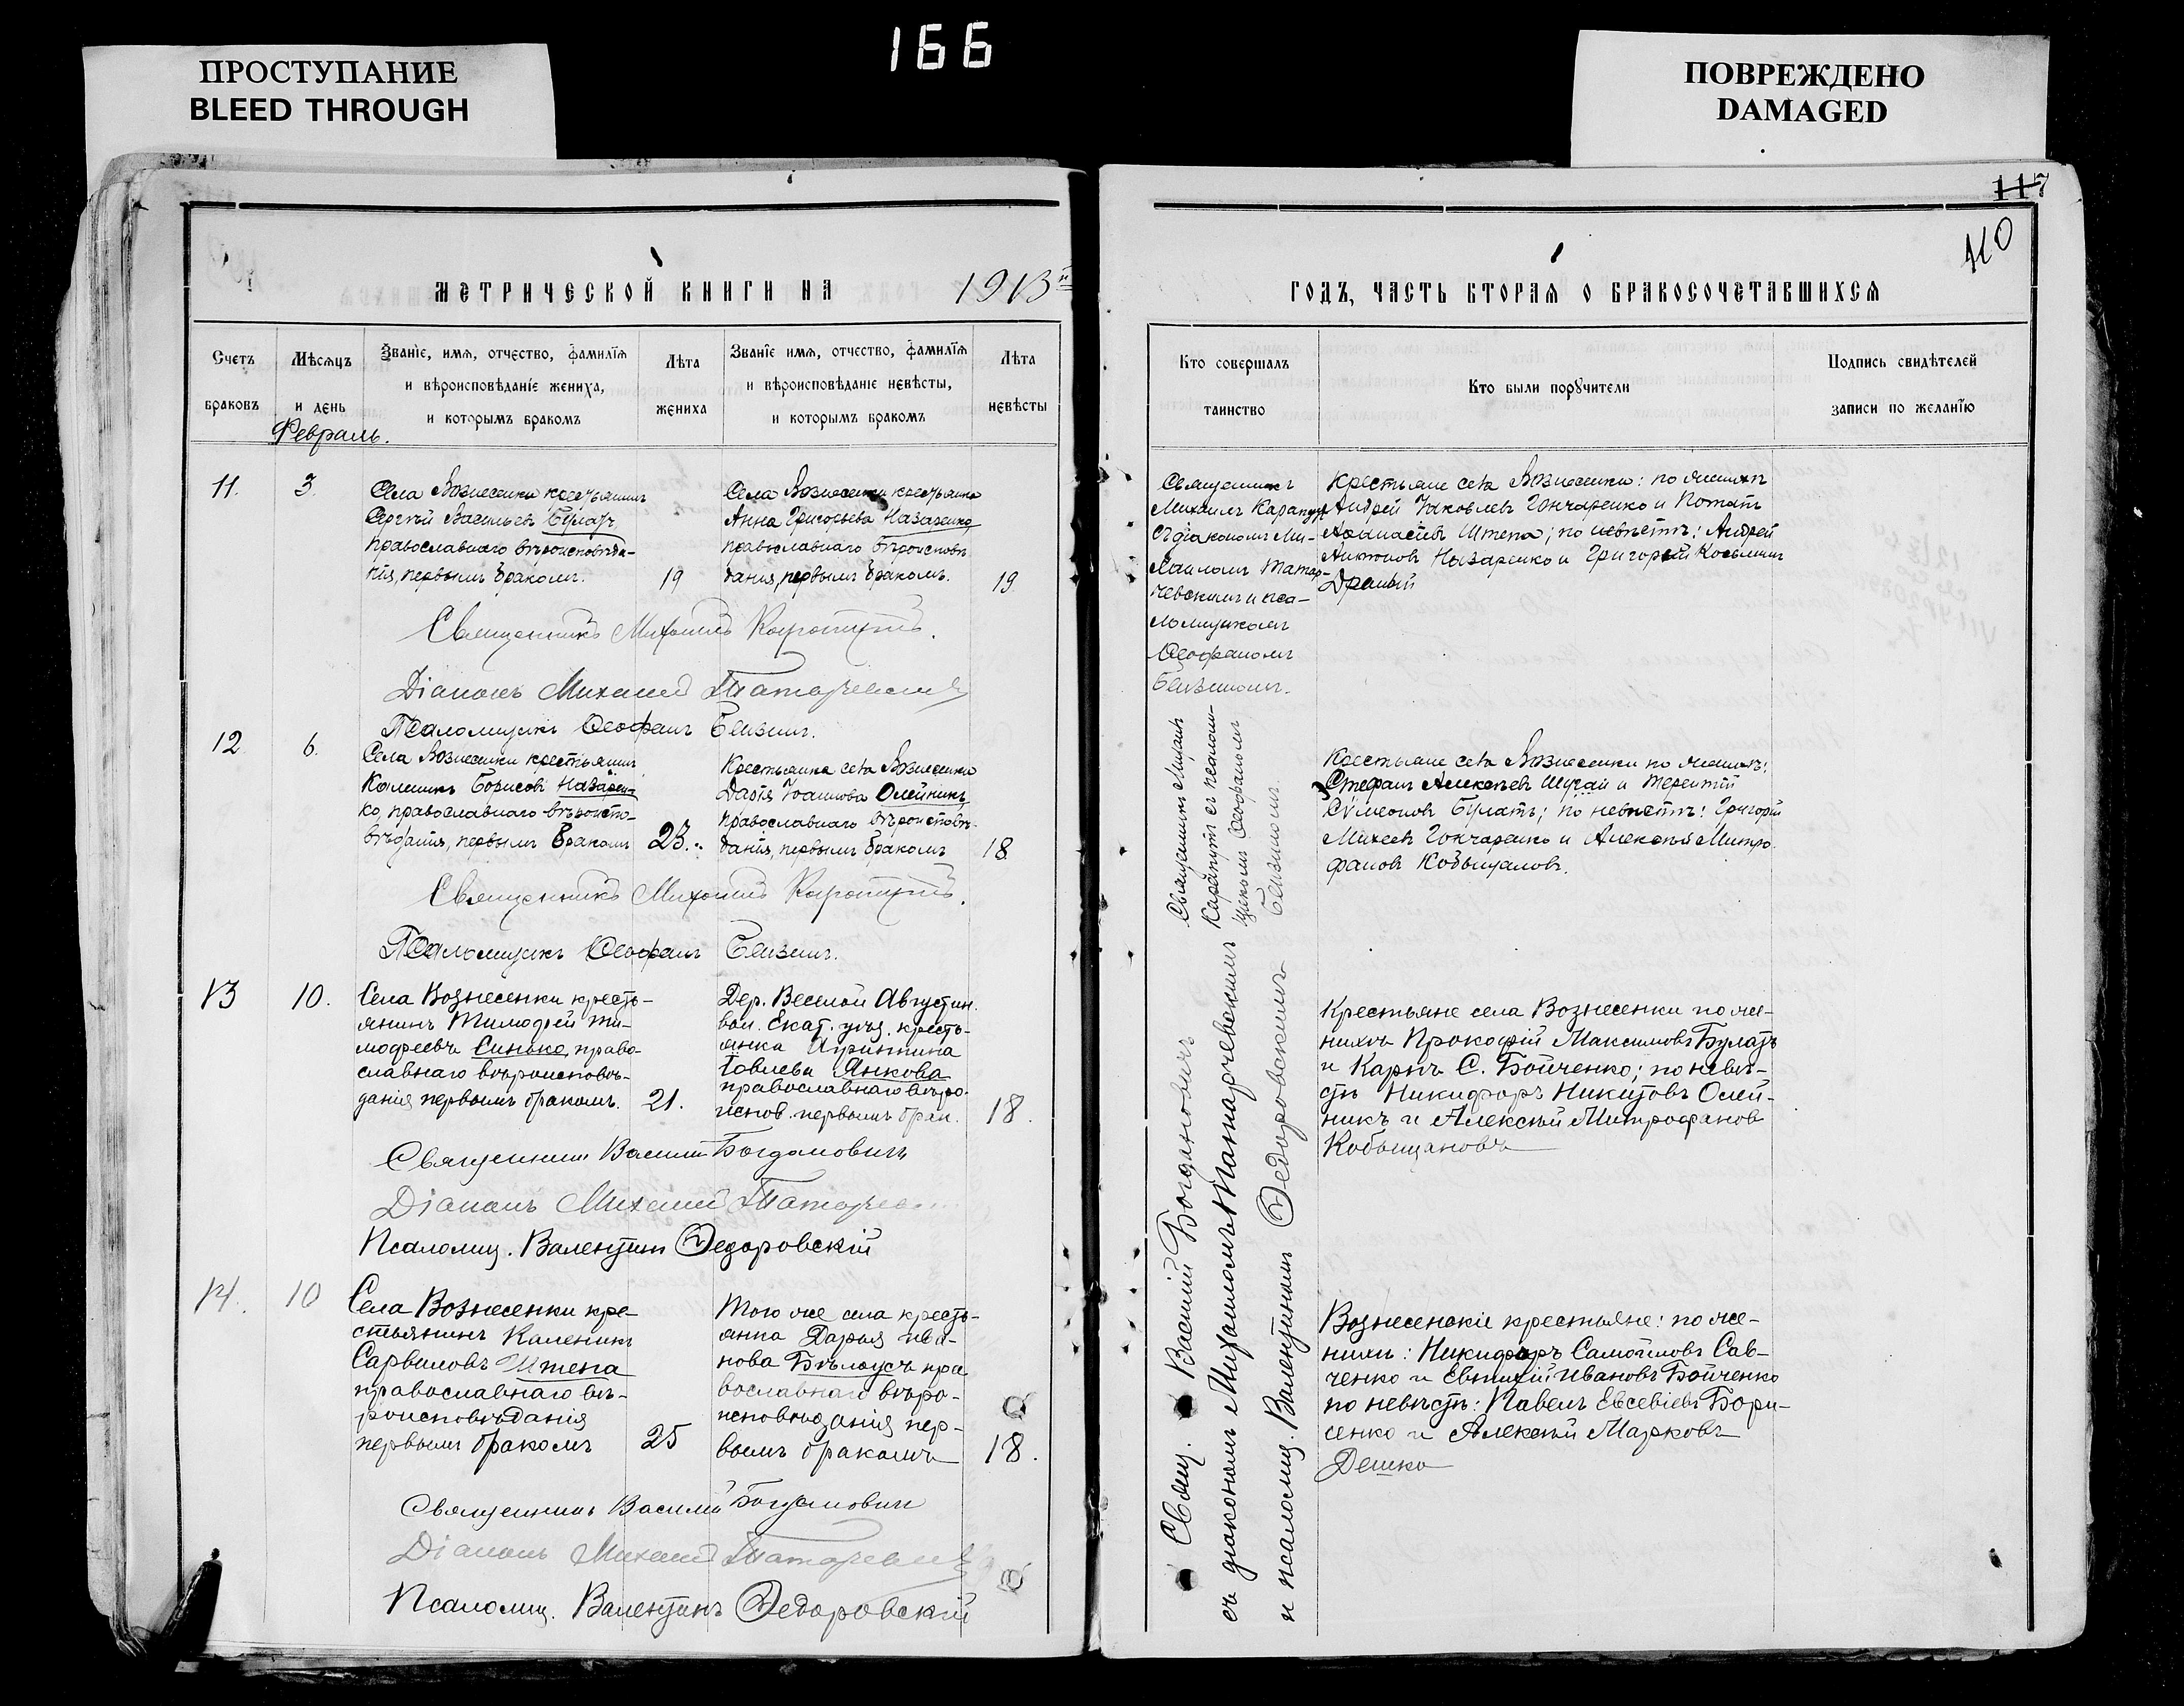 166
ПРОСТУПАНИЕ
BLEED THROUGH
ПОВРЕЖДЕНО
DAMAGED
117
110
МЕТРИЧЕСКОЙ КНИГИ НА 1913й
ГОДЪ, ЧАСТЬ ВТОРАЯ О БРАКОСОЧЕТАВШИХСЯ
Счетъ
браковъ
Мѣсяцъ
и день
Званіе, имя, отчество, фамилія
и вѣроисповѣданіе жениха,
и которымъ бракомъ
Лѣта
жениха
Званіе имя, отчество, фамилія
и вѣроисповѣданіе невѣсты,
и которымъ бракомъ
Лѣта
невѣсты
Кто совершалъ
таинство
Кто были поручители
Подпись свидѣтелей
записи по желанію
Февраль.
11.
3.
Села Вознесенки крестьянинъ
Сергѣй Васильевъ Булатъ,
православнаго вѣроисповѣда-
нія, первымъ бракомъ.
19
Села Вознесенки крестьянка
Анна Григорьева Назаренко
православнаго вѣроисповѣ
данія, первымъ бракомъ.
19
Священникъ
Михаилъ Карапутъ
съ діакономъ Ми-
хаиломъ Татар-
чевскимъ и пса-
ломщикомъ
Ѳеофаномъ
Крестьяне села Вознесенки: по женихѣ
Андрей Яковлевъ Гончаренко и Потапъ
Аѳанасіевъ Штепа; по невѣстѣ: Андрей
Антоновъ Назаренко и Григорій Косьминъ
Драный
Священникъ Михаилъ Карапутъ.
Діаконъ Михаилъ Татарчевскій
Псаломщикъ Ѳеофанъ
12
6.
Села Вознесенки крестьянинъ
Калиникъ Борисовъ Назарен-
ко, православнаго вѣроиспо-
вѣданія, первымъ бракомъ
23.
Крестьянка села Вознесенки
Дарія Іоаннова Олейникъ
православнаго вѣроисповѣ-
данія, первымъ бракомъ
18
Священникъ Михаилъ
Карапутъ съ псалом-
щикомъ Ѳеофаномъ
Крестьяне села Вознесенки по женихѣ:
Стефанъ Алексѣевъ и Терентій
Сѵмеоновъ Булатъ; по невѣстѣ: Григорій
Михеевъ Гончаренко и Алексѣй Митро-
фановъ Кобыщановъ.
Священникъ Михаилъ Карапутъ.
Псаломщикъ Ѳеофанъ
13
10.
Села Вознесенки кресть-
янинъ Тимофей Ти-
мофеевъ Синько, право-
славнаго вѣроисповѣ-
данія первымъ бракомъ.
21.
Дер. Веселой Августин.
вол. Екат. уѣз. кресть-
янка Агриппина
Іовлева Янкова
православнаго вѣро-
испов. первымъ брак.
18.
Свящ. Василій Богдановичъ
съ діакономъ Михаиломъ Татарчевскимъ
и псаломщ. Валентиномъ Ѳедоровскимъ
Крестьяне села Вознесенки по же-
нихѣ Прокофій Максимовъ Булатъ
и Карпъ С. Бойченко; по невѣ-
стѣ Никифоръ Никитовъ Олей-
никъ и Алексѣй Митрофановъ
Кобыщановъ
Священникъ Василій Богдановичъ
Діаконъ Михаилъ Татарчев
Псаломщ. Валентинъ Ѳедоровскій
14.
10
Села Вознесенки кре-
стьянинъ Каленикъ
Сарвиловъ Штепа
православнаго вѣ-
роисповѣданія
первымъ бракомъ
25
Того же села кресть-
янка Дарья Ива-
нова Бѣлоусъ пра
вославнаго вѣро-
исповѣданія пер-
вымъ бракомъ
18.
Вознесенскіе крестьяне: по же-
нихѣ: Никифоръ Самойловъ Сав-
ченко и Евтихій Ивановъ Бойченко
по невѣстѣ: Павелъ Евсевіевъ Бори-
сенко и Алексѣй Марковъ
Дешко
Священникъ Василій Богдановичъ
Діаконъ Михаилъ Татарчевскій
Псаломщ. Валентинъ Ѳедоровскій